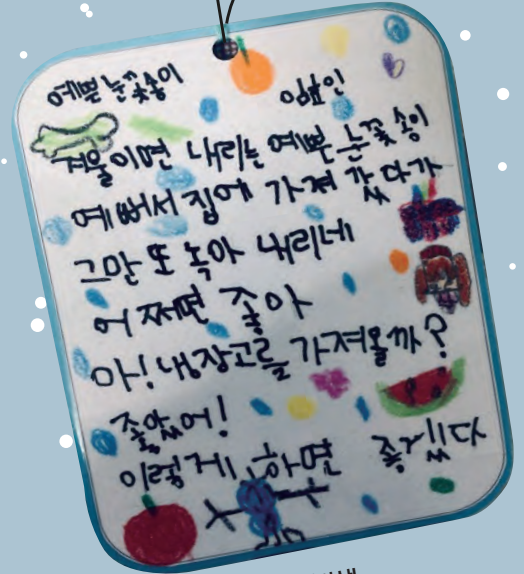 예쁜 눈꽃송이
임한인
겨울이면 내리는 예쁜 눈꽃송이
예뻐서 집에 가져 갔다가
그만 또 녹아 내리네
어쩌면 좋아
아! 냉장고를 가져올까?
좋았어!
이렇게 하면 좋겠다